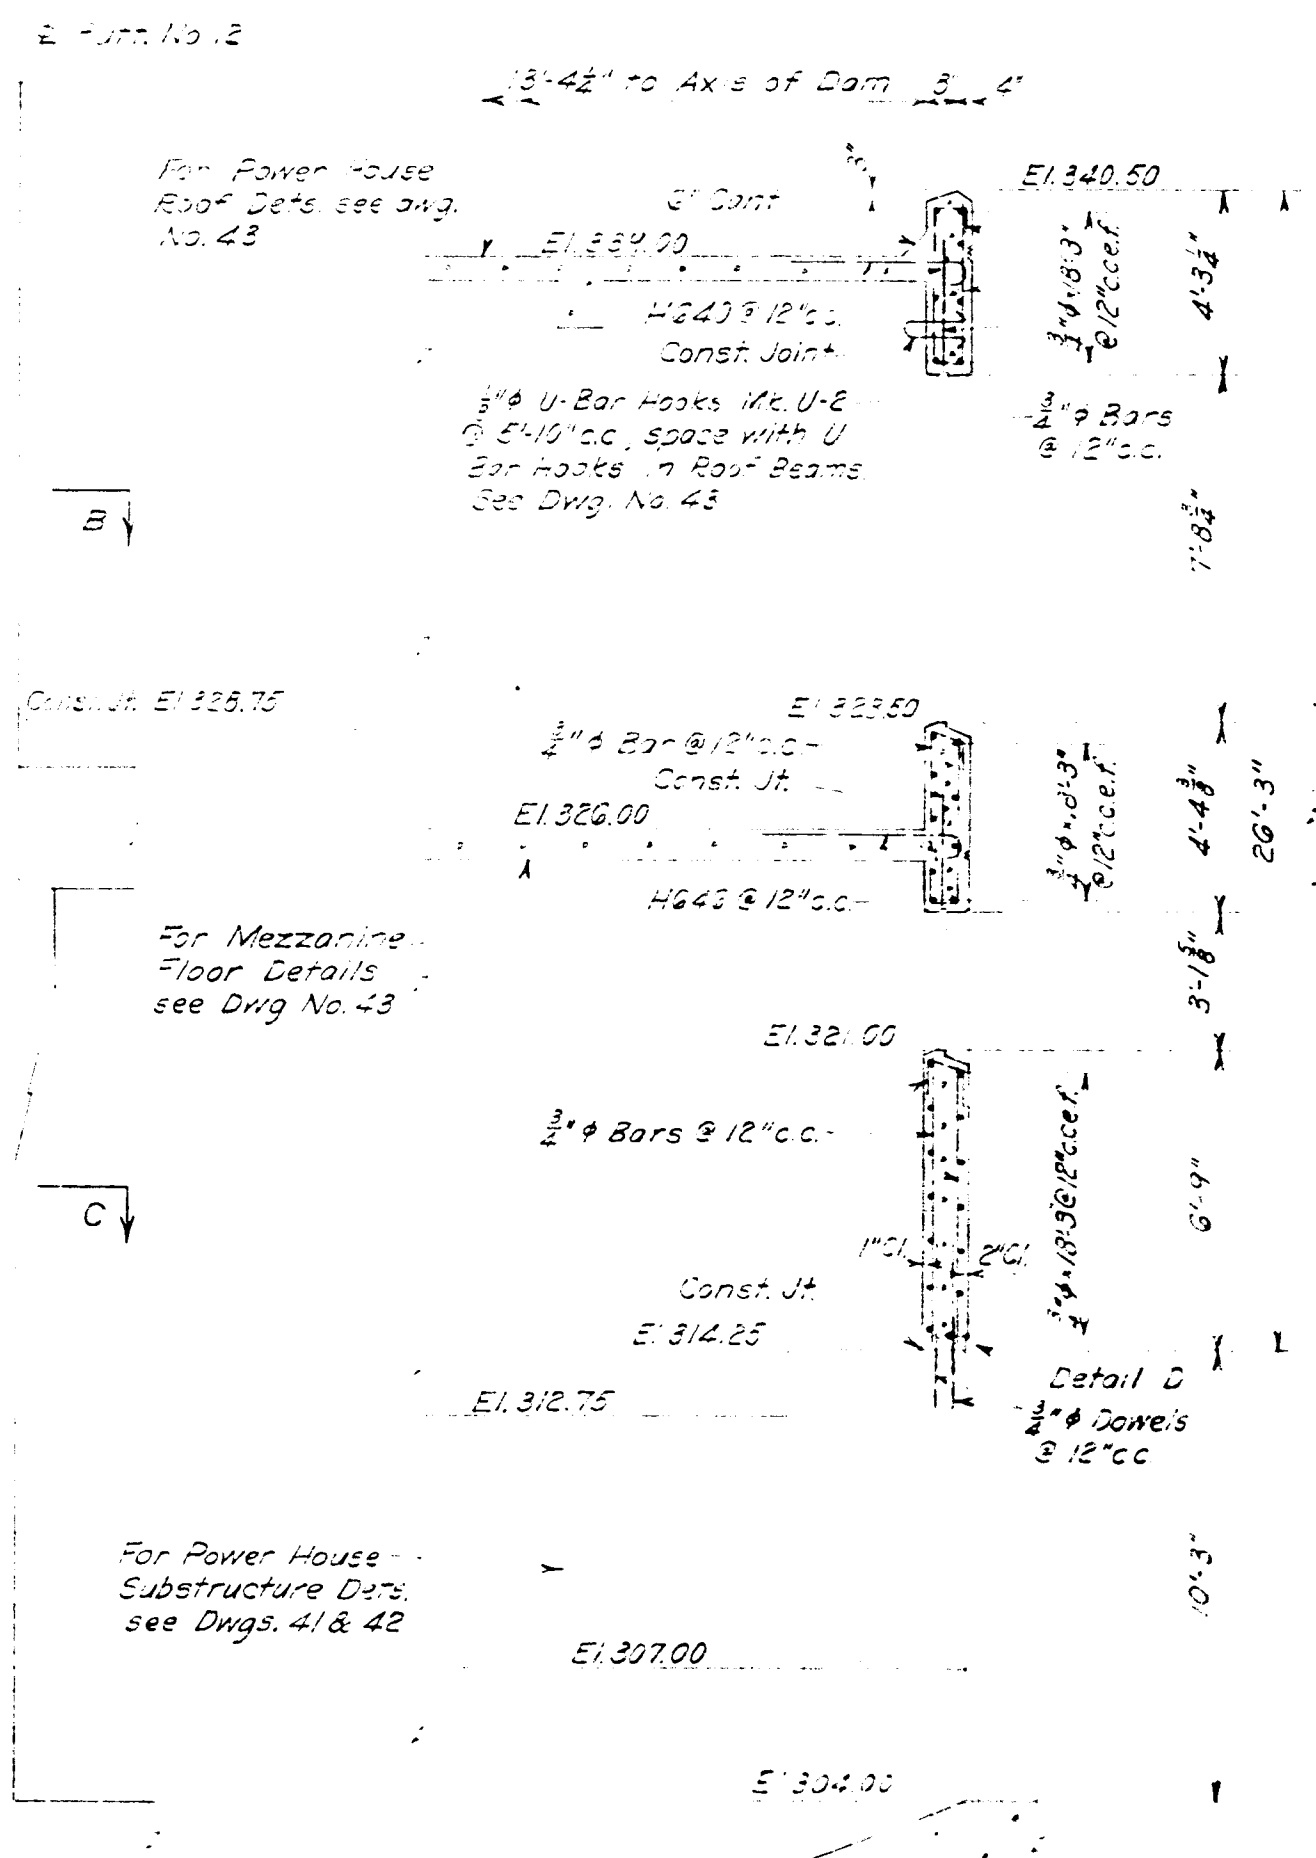 ℄ Butt. No. 12
13'-4½" to Axis of Dam 8" 4"
For Power House
Roof Dets. see dwg.
No. 43
6" Cant
El. 340.50
El. 339.00
¾"ϕ×18'-3"
@12"c.c.e.f.
4'-3¼"
H640 @ 12"c.c.
Const. Joint
U-Bar Hooks Mk. U-2
@ 5'-10" c.c., space with U
Bar Hooks in Roof Beams.
See Dwg. No. 43
¾"ϕ Bars
@ 12"c.c.
B
7'-8¾"
Const. Jt. El. 328.75
El. 328.50
¾"ϕ Bar @ 12"c.c.
Const. Jt.
El. 326.00
¾"ϕ×18'-3"
@12"c.c.e.f.
4'-4⅜"
26'-3"
@ 12"c.c.
For Mezzanine
Floor Details
see Dwg No. 43
3'-1⅝"
El. 321.00
¾"ϕ Bars @ 12"c.c.
¾"ϕ×18'-3@12"c.c.e.f.
6'-9"
C
1"Cl. 2"Cl.
Const. Jt.
El. 314.25
Detail D
El. 312.75
¾"ϕ Dowels
@ 12"c.c.
For Power House
Substructure Dets.
see Dwgs. 41 & 42
10'-3"
El. 307.00
El. 304.00